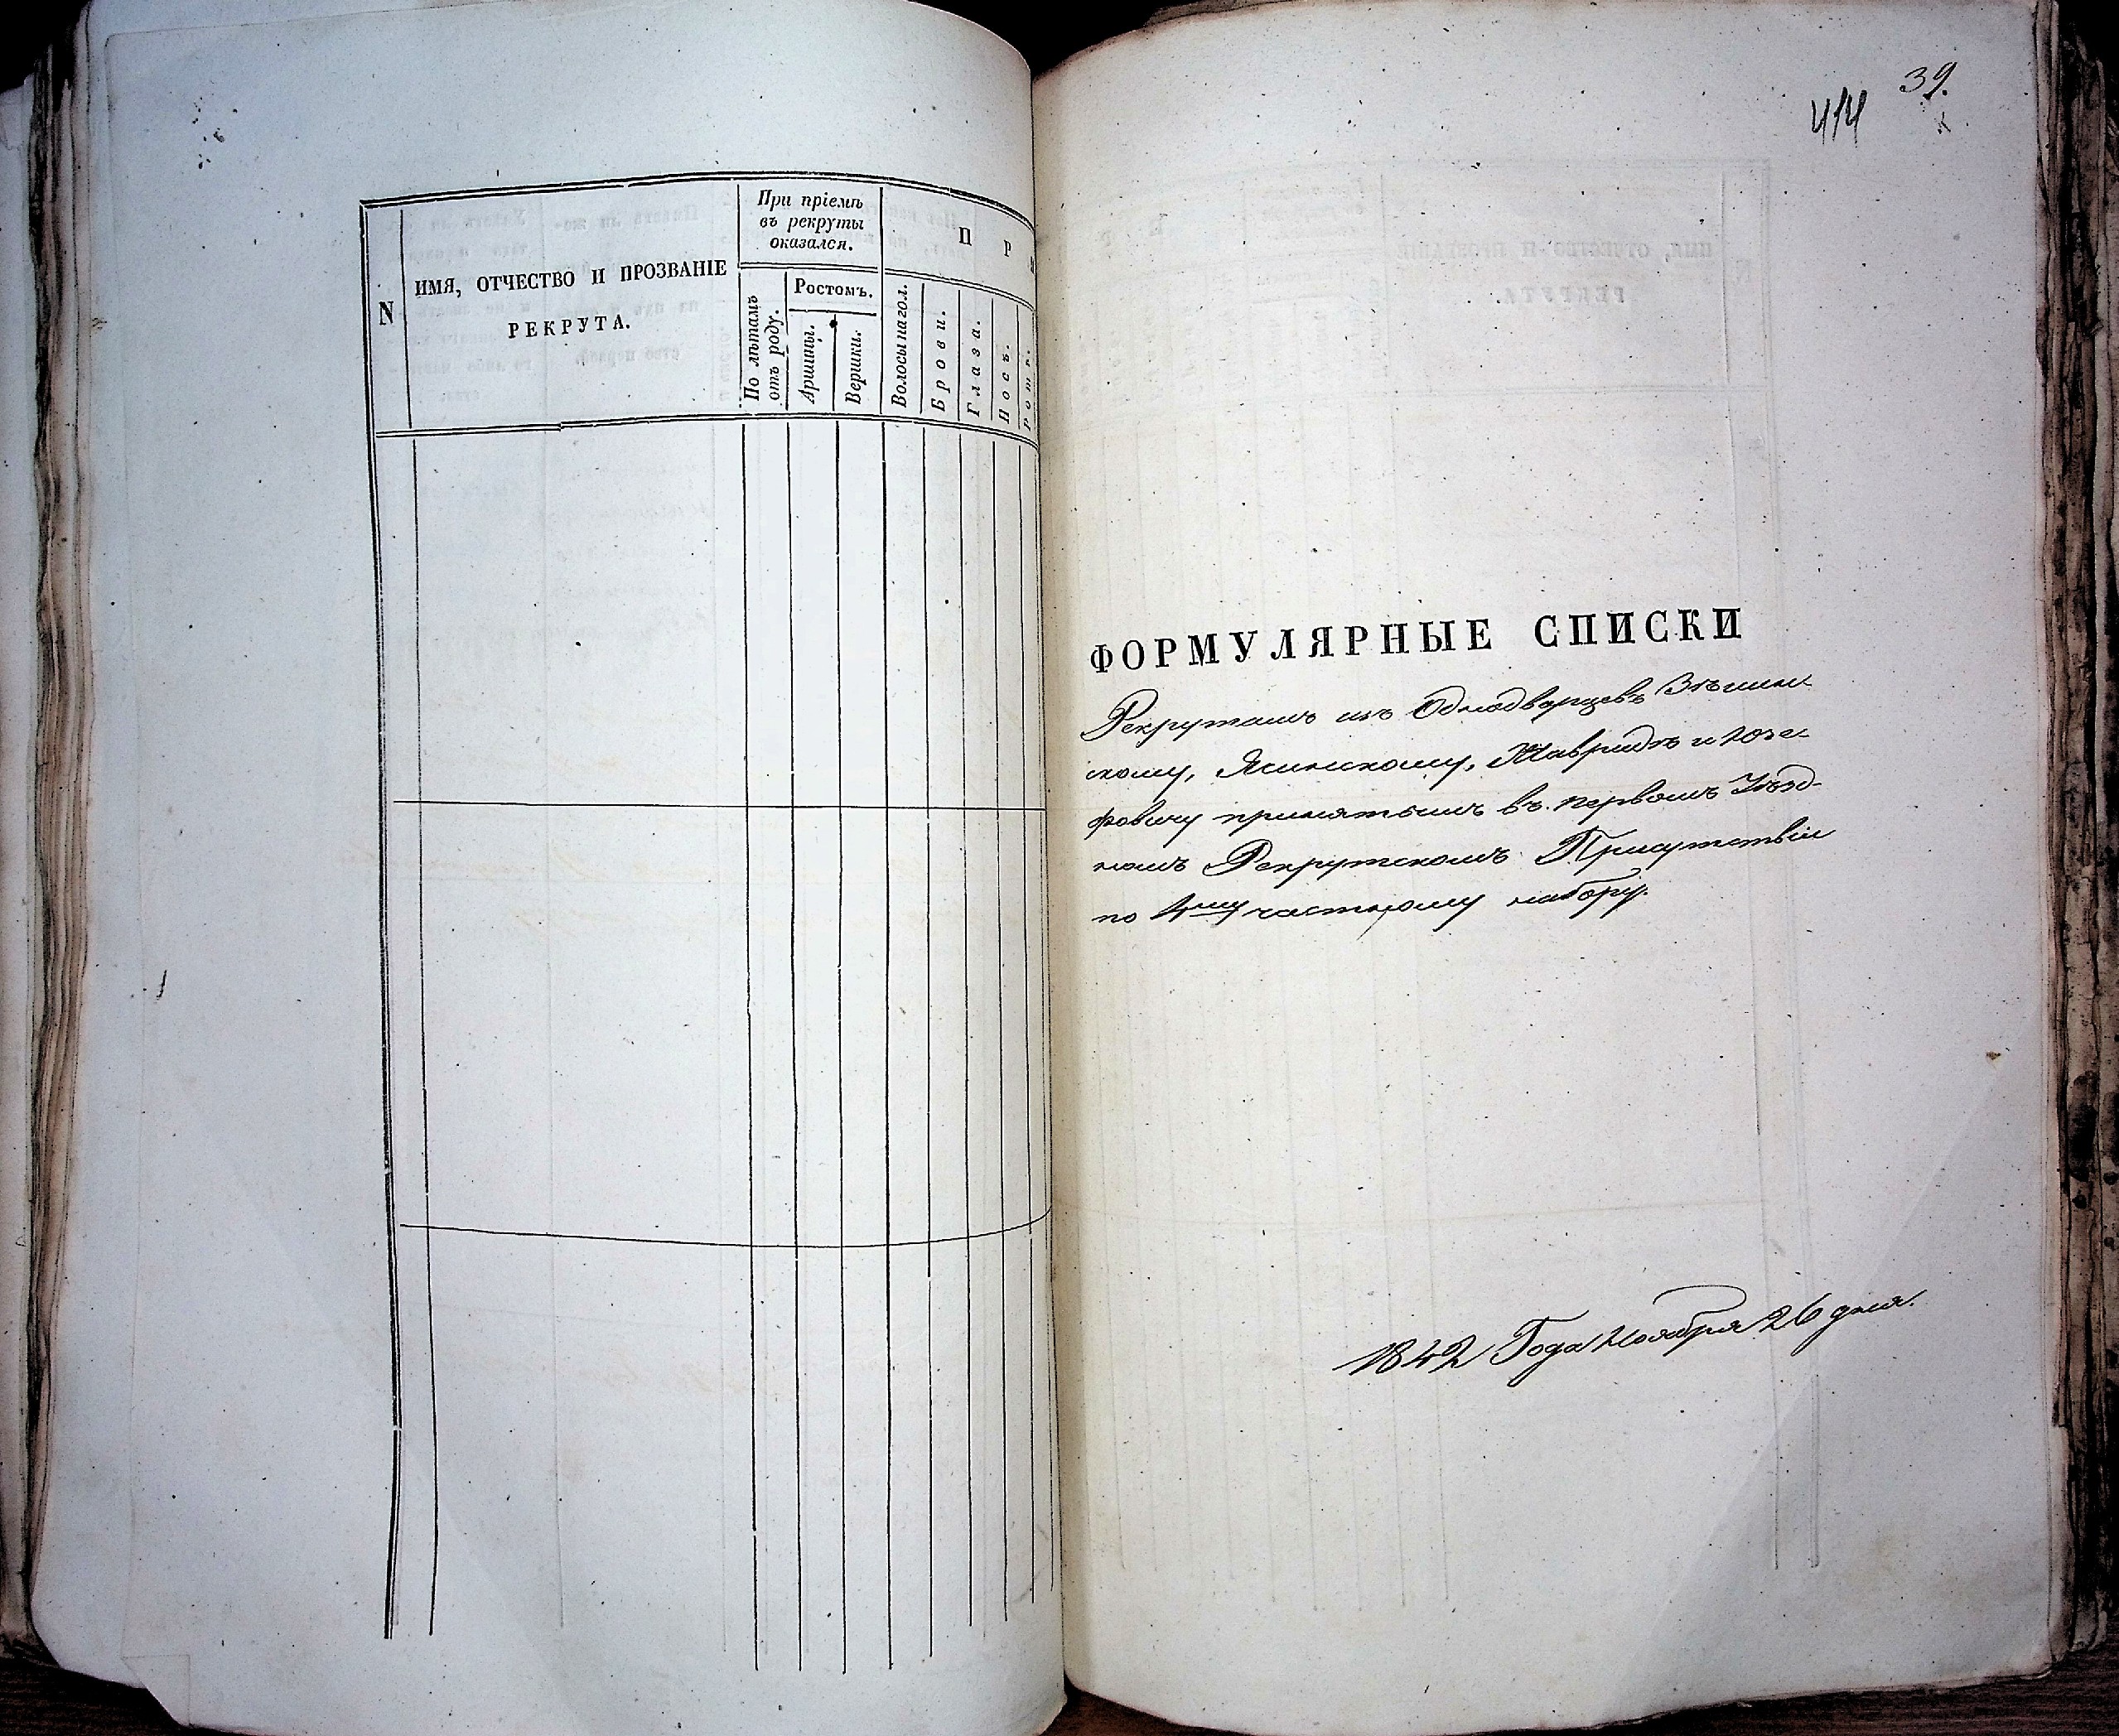 N
ИМЯ, ОТЧЕСТВО И ПРОЗВАНІЕ
РЕКРУТА.
При пріемѣ
въ рекруты
оказался.
По лѣтамъ
отъ роду.
Ростомъ.
Аршины.
Вершки.
П Р И
Волосы на гол.
Брови.
Глаза.
Носъ.
Ротъ.
39.
414
ФОРМУЛЯРНЫЕ СПИСКИ
Рекрутамъ изъ Однодворцевъ
скому, Ясинскому, и Юзе-
фовичу принятымъ въ первомъ Уѣзд-
номъ Рекрутскомъ Присутствіи
по 4му частному набору.
1842 Года Ноября 26 дня.